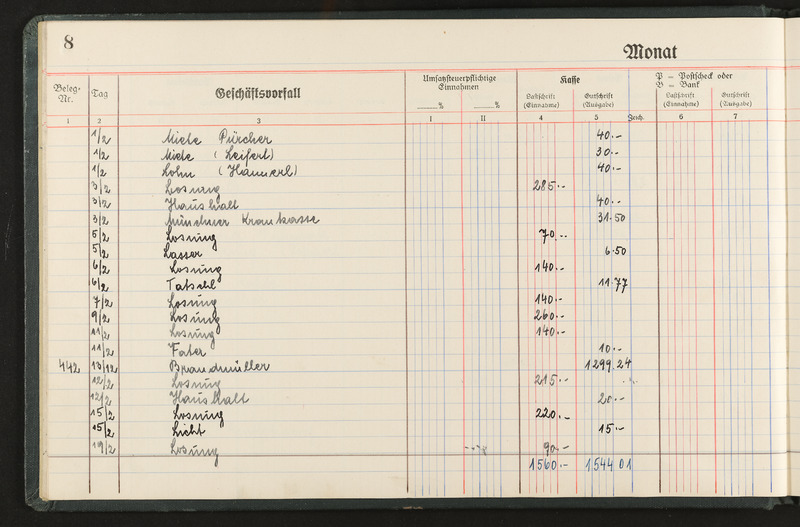 8
Monat
Beleg-Nr. Tag Geschäftsvorfall Umsatzsteuerpflichtige Einnahmen Kasse P = Postscheck oder B = Bank
% % Lastschrift (Einnahme) Gutschrift (Ausgabe) Zeich. Lastschrift (Einnahme) Gutschrift (Ausgabe)
1 2 3 I II 4 5 6 7
1/2 Miete Pürcher 40.-
1/2 Miete (Leiferl) 30.-
1/2 Lohn (Hannerl) 40.-
3/2 Losung 285.-
3/2 Haushalt 40.-
3/2 Münchner Krankasse 31.50
5/2 Losung 70.-
5/2 Lasser 6.50
6/2 Losung 140.-
6/2 Tatschl 11.77
7/2 Losung 140.-
9/2 Losung 260.-
11/2 Losung 140.-
11/2 Fater 10.-
442 13/12 Brandmüller 1299.24
12/2 Losung 215.-
12/2 Haushalt 20.-
15/2 Losung 220.-
15/2 Licht 15.-
19/2 Losung 90.-
1560.- 1544 01